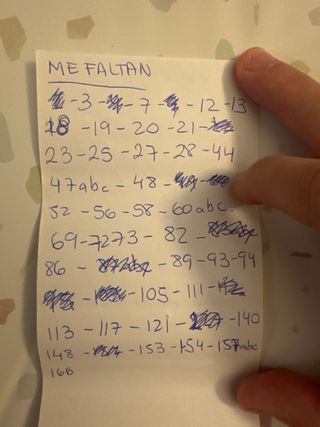 ME FALTAN
-3- -7- -12-13
18 -19-20-21-
23-25-27-28-44
47abc-48-
52-56-58-60abc-
69-7273-82-
86- -89-93-94
-105-111-
113-117-121- -140
148- -153-154-157abc
166